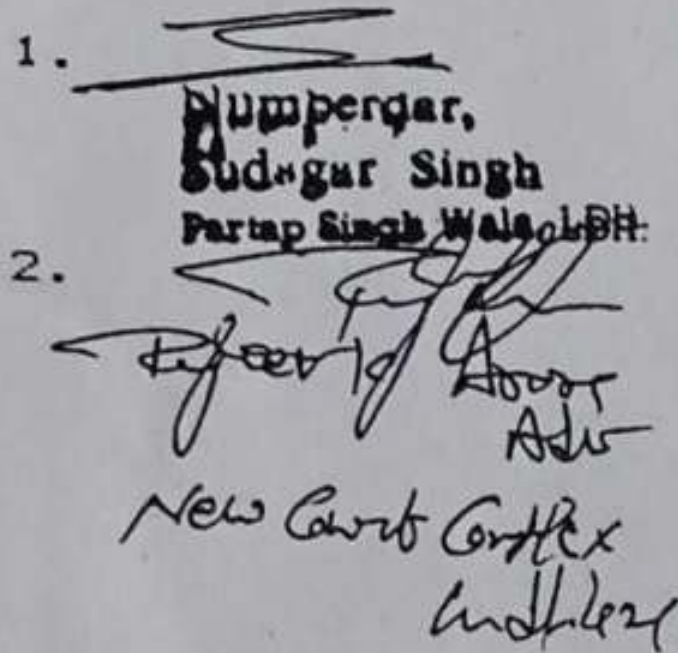 1.
Numpergar,
Sudagar Singh
Partap Singh Wala, LDH.
2.
Arora
Adv
New Court Complex
Ludhiana